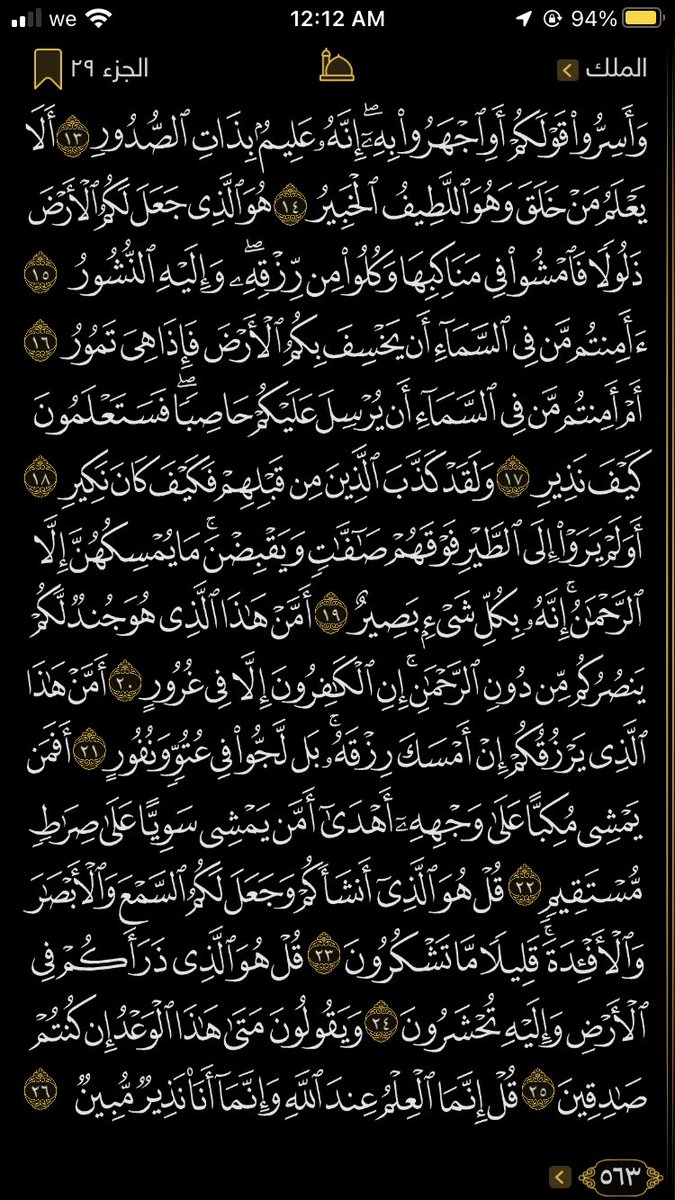 we 12:12 AM 94%
الملك الجزء ٢٩
وَأَسِرُّوا۟ قَوْلَكُمْ أَوِ ٱجْهَرُوا۟ بِهِۦٓ ۖ إِنَّهُۥ عَلِيمٌۢ بِذَاتِ ٱلصُّدُورِ ١٣ أَلَا
يَعْلَمُ مَنْ خَلَقَ وَهُوَ ٱللَّطِيفُ ٱلْخَبِيرُ ١٤ هُوَ ٱلَّذِى جَعَلَ لَكُمُ ٱلْأَرْضَ
ذَلُولًا فَٱمْشُوا۟ فِى مَنَاكِبِهَا وَكُلُوا۟ مِن رِّزْقِهِۦ ۖ وَإِلَيْهِ ٱلنُّشُورُ ١٥
ءَأَمِنتُم مَّن فِى ٱلسَّمَآءِ أَن يَخْسِفَ بِكُمُ ٱلْأَرْضَ فَإِذَا هِىَ تَمُورُ ١٦
أَمْ أَمِنتُم مَّن فِى ٱلسَّمَآءِ أَن يُرْسِلَ عَلَيْكُمْ حَاصِبًا ۖ فَسَتَعْلَمُونَ
كَيْفَ نَذِيرِ ١٧ وَلَقَدْ كَذَّبَ ٱلَّذِينَ مِن قَبْلِهِمْ فَكَيْفَ كَانَ نَكِيرِ ١٨
أَوَلَمْ يَرَوْا۟ إِلَى ٱلطَّيْرِ فَوْقَهُمْ صَٰٓفَّٰتٍ وَيَقْبِضْنَ ۚ مَا يُمْسِكُهُنَّ إِلَّا
ٱلرَّحْمَٰنُ ۚ إِنَّهُۥ بِكُلِّ شَىْءٍۭ بَصِيرٌ ١٩ أَمَّنْ هَٰذَا ٱلَّذِى هُوَ جُندٌ لَّكُمْ
يَنصُرُكُم مِّن دُونِ ٱلرَّحْمَٰنِ ۚ إِنِ ٱلْكَٰفِرُونَ إِلَّا فِى غُرُورٍ ٢٠ أَمَّنْ هَٰذَا
ٱلَّذِى يَرْزُقُكُمْ إِنْ أَمْسَكَ رِزْقَهُۥ ۚ بَل لَّجُّوا۟ فِى عُتُوٍّ وَنُفُورٍ ٢١ أَفَمَن
يَمْشِى مُكِبًّا عَلَىٰ وَجْهِهِۦٓ أَهْدَىٰٓ أَمَّن يَمْشِى سَوِيًّا عَلَىٰ صِرَٰطٍ
مُّسْتَقِيمٍ ٢٢ قُلْ هُوَ ٱلَّذِىٓ أَنشَأَكُمْ وَجَعَلَ لَكُمُ ٱلسَّمْعَ وَٱلْأَبْصَٰرَ
وَٱلْأَفْـِٔدَةَ ۖ قَلِيلًا مَّا تَشْكُرُونَ ٢٣ قُلْ هُوَ ٱلَّذِى ذَرَأَكُمْ فِى
ٱلْأَرْضِ وَإِلَيْهِ تُحْشَرُونَ ٢٤ وَيَقُولُونَ مَتَىٰ هَٰذَا ٱلْوَعْدُ إِن كُنتُمْ
صَٰدِقِينَ ٢٥ قُلْ إِنَّمَا ٱلْعِلْمُ عِندَ ٱللَّهِ وَإِنَّمَآ أَنَا۠ نَذِيرٌ مُّبِينٌ ٢٦
٥٦٣